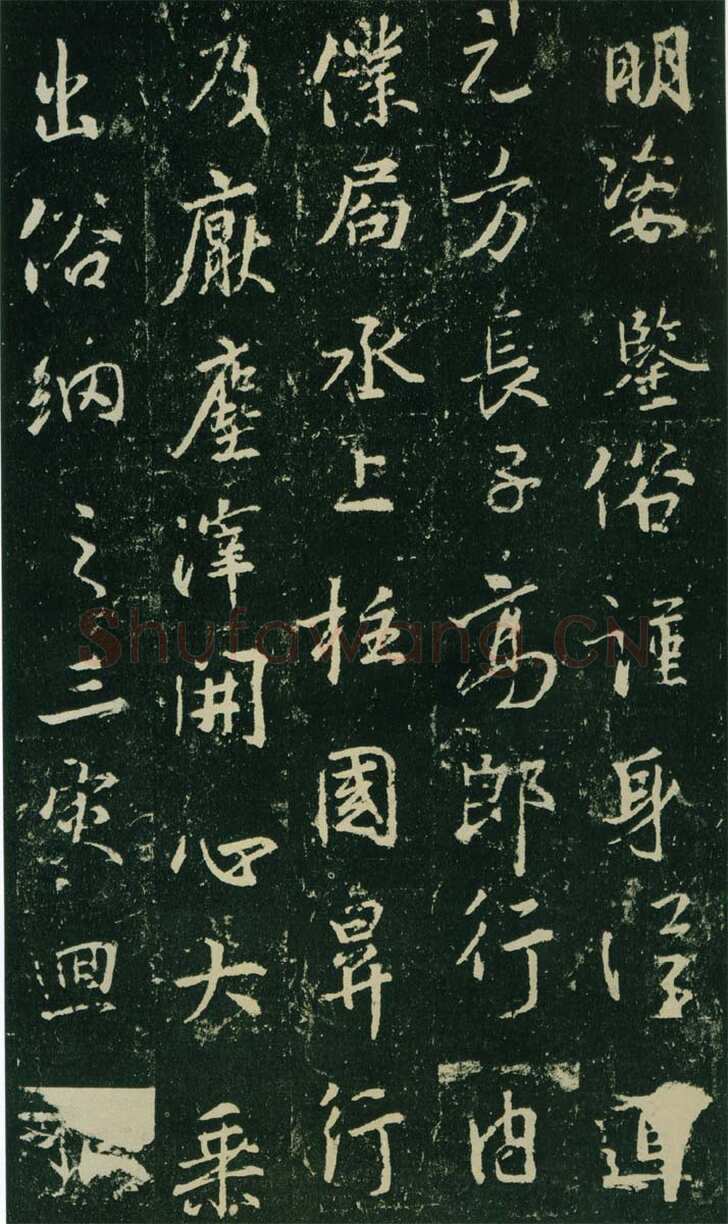 明姿鑒俗謹身
元方長子高郎行內
僕局丞上柱國昇行
及厭塵滓開心大乘
出俗網之三灾迴
Shufawang.CN